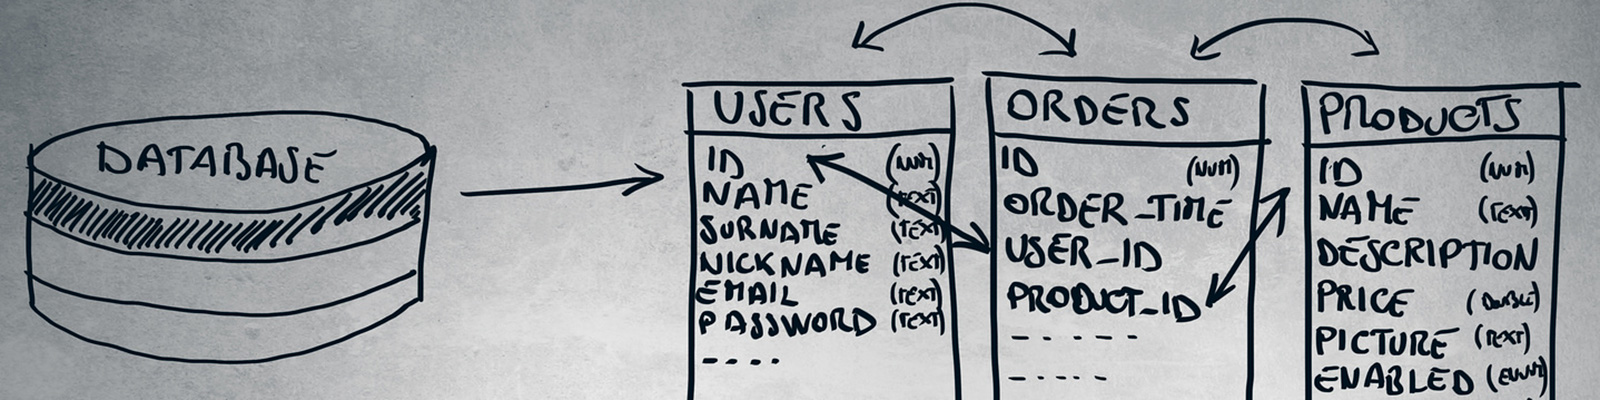 DATABASE
USERS
ID (NUM)
NAME (TEXT)
SURNAME (TEXT)
NICKNAME (TEXT)
EMAIL (TEXT)
PASSWORD (TEXT)
ORDERS
ID (NUM)
ORDER_TIME
USER_ID
PRODUCT_ID
PRODUCTS
ID (NUM)
NAME (TEXT)
DESCRIPTION
PRICE (DOUBLE)
PICTURE (TEXT)
ENABLED (ENUM)